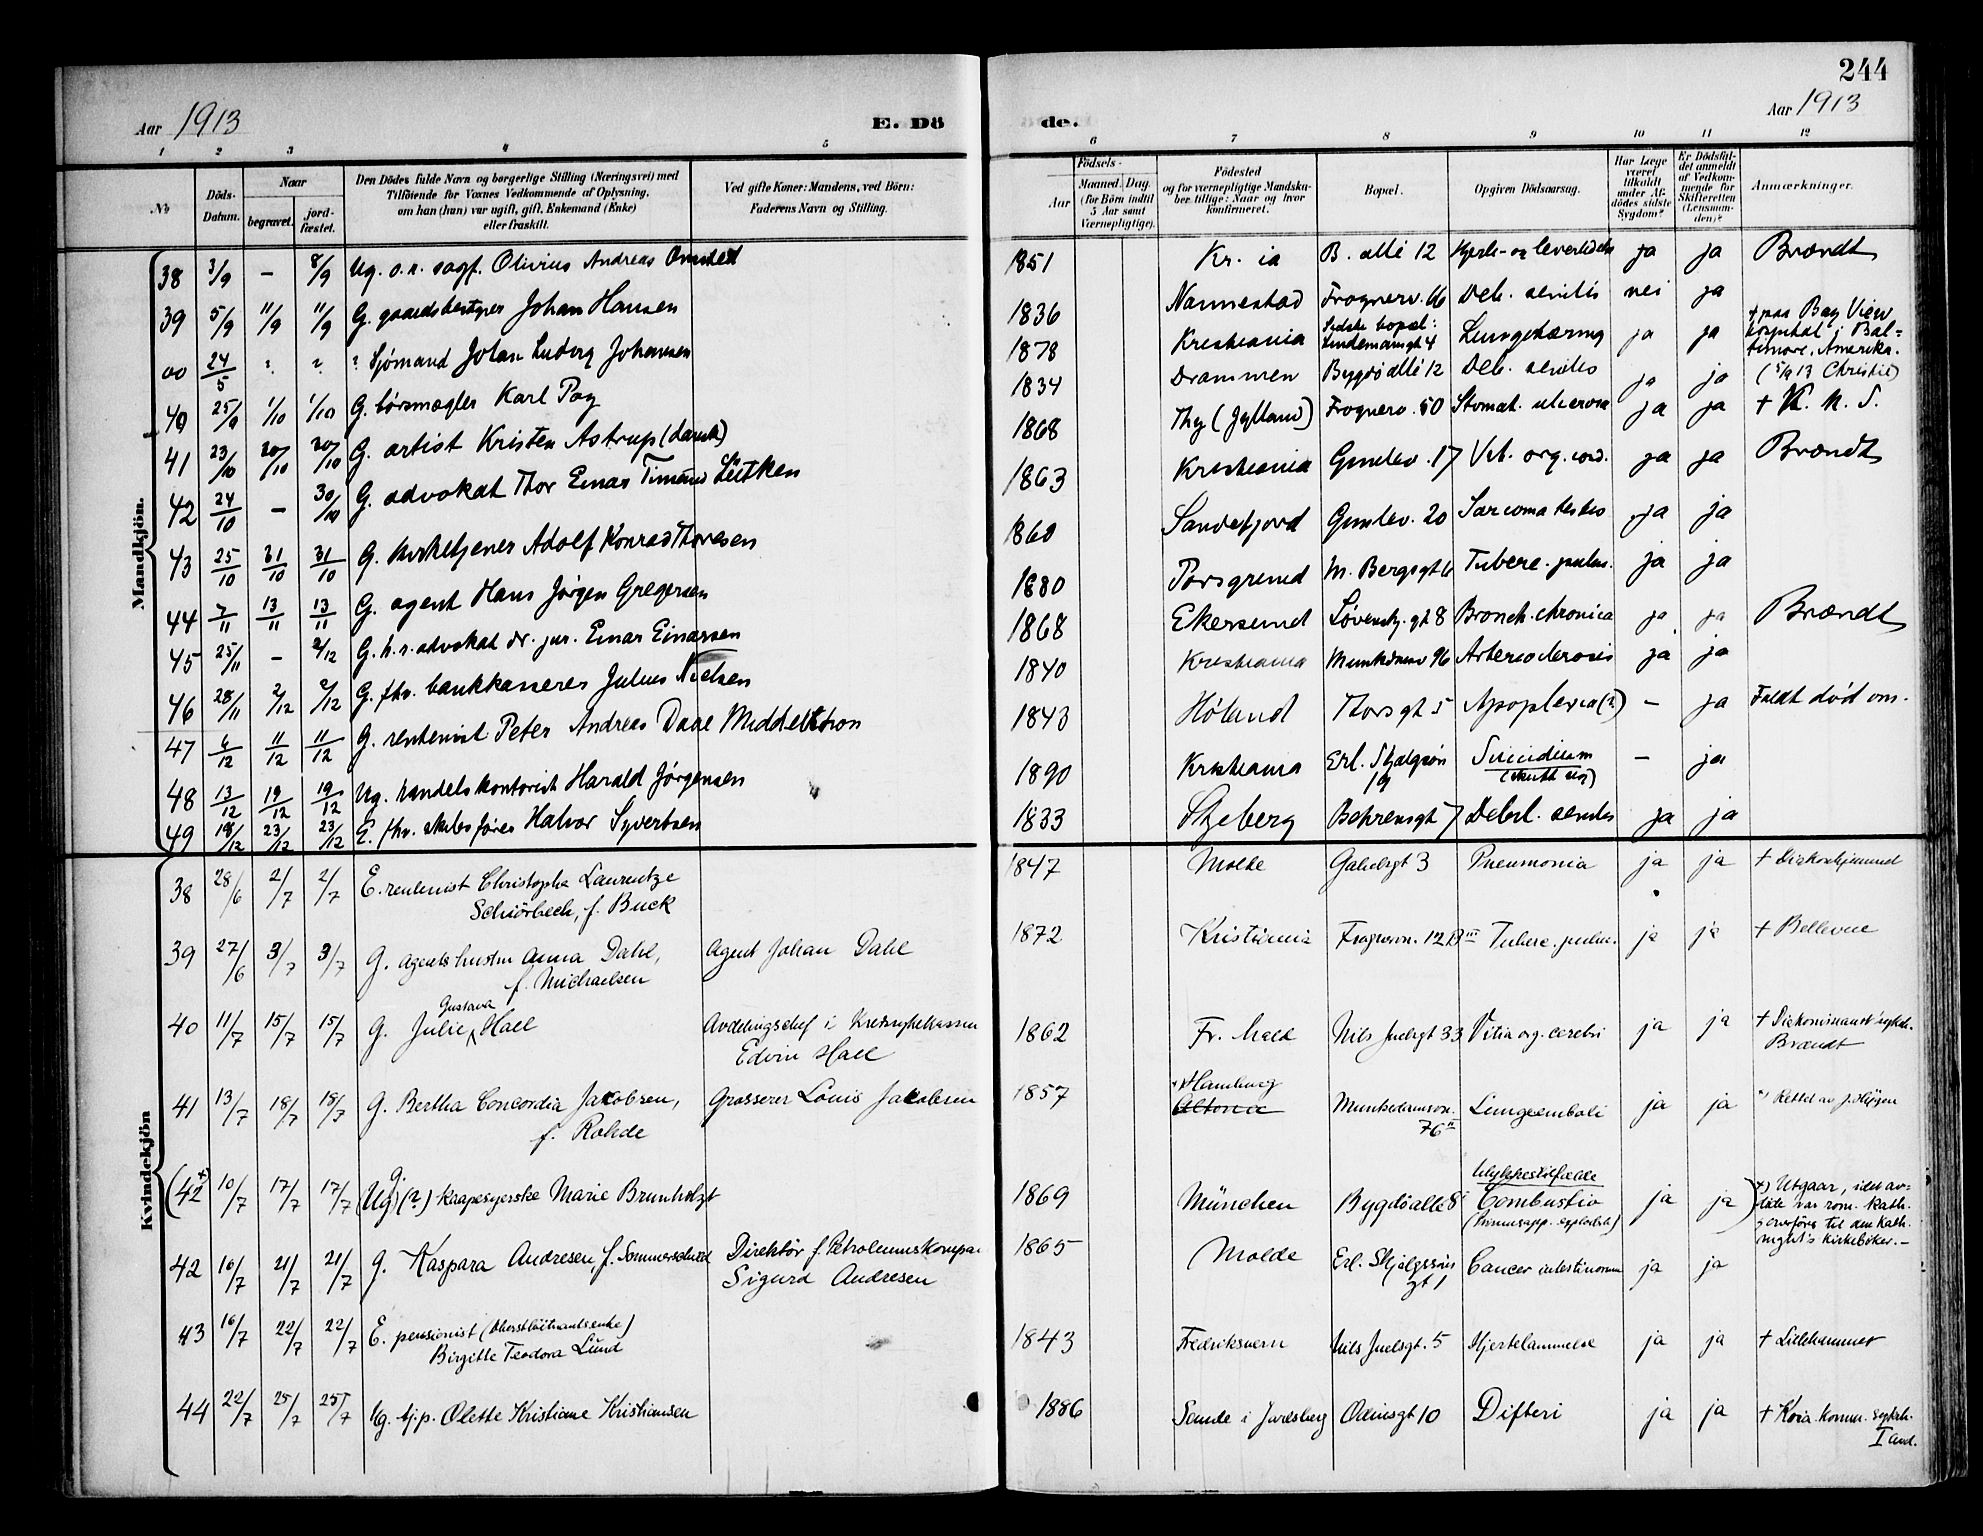 244
Aar 1913
E. Dö
de.
Aar 1913
1 2 3 4 5 6 7 8 9 10 11 12
№
Döds-
Datum.
Naar
begravet.
jord-
fæstet.
Den Dödes fulde Navn og borgerlige Stilling (Næringsvei) med
Tilföiende for Voxnes Vedkommende af Oplysning,
om han (hun) var ugift, gift, Enkemand (Enke)
eller fraskilt.
Ved gifte Koner: Mandens, ved Börn:
Faderens Navn og Stilling.
Födsels-
Aar
Maaned. Dag.
(for Börn indtil
5 Aar samt
Værnepligtige).
Födested
og for værnepligtige Mandska-
ber tillige: Naar og hvor
konfirmeret.
Bopæl.
Opgiven Dödsaarsag.
Har Læge
været
tilkaldt
under Af-
dödes sidste
Sygdom?
Er Dödsfal-
det anmeldt
af Vedkom-
mende for
Skifteretten
(Lensman-
den)?
Anmærkninger.
Mandkjön.
38 3/9 – 8/9 Ug. o.r. sagf. Olivius Andreas Onsted 1851 Kr. ia B. allé 12 Hjerte- og leverlidelse ja ja Brændt
39 5/9 11/9 11/9 G. gaardsbestyrer Johan Hansen 1836 Nannestad Frognerv. 66 Deb. senilis nei ja
00 24/5 ? ? ? Sjømand Johan Ludvig Johansen 1878 Kristiania Sidste bopæl: Lindemansgt 4 Lungetæring ja ja + paa Bay View
hospital i Bal-
timore, Amerika.
(5/9 13 Christie)
40 25/9 1/10 1/10 G. børsmægler Karl Pay 1834 Drammen Bygdø allé 12 Deb. senilis ja ja
41 23/10 30/10 30/10 G. artist Kristen Astrup (dansk) 1868 Thy (Jylland) Frognerv. 50 Stomat. ulcerosa ja ja + K. K. S.
42 24/10 – 30/10 G. advokat Thor Einar Lütken 1863 Kristiania Gimlev. 17 Vit. org. cord. ja ja Brændt
43 25/10 31/10 31/10 G. kirketjener Adolf Konrad Thoresen 1860 Sandefjord Gimlev. 20 Sarcoma testis ja ja
44 7/11 13/11 13/11 G. agent Hans Jörgen Gregersen 1880 Porsgrund M. Bergsgt 6 Tuberc. pulm. ja ja
45 25/11 – 2/12 G. h.r. advokat dr. jur. Einar Einarsen 1868 Ekersund Løvensk. gt 8 Bronch. chronica ja ja Brændt
46 28/11 2/12 2/12 G. fhv. bankkasserer Julius Nielsen 1840 Kristiania Munkedamsv 96 Arteriosclerosis ja ja
47 6/12 11/12 11/12 G. rentenist Peter Andreas Daae Middelthon 1843 Høland Thorsgt 5 Apoplexia (?) – ja Faldt død om.
48 13/12 19/12 19/12 Ug. handelskontorist Harald Jørgensen 1890 Kristiania Erl. Skjalgsøns Suicidium – ja
19 (skutt sig)
49 18/12 23/12 23/12 E. fhv. skibsfører Halvor Syvertsen 1833 Skjeberg Behrensgt 7 Debil. senilis ja ja
Kvindekjön
38 28/6 2/7 2/7 E. rentenist Christopha Laurentze 1847 Molde Gabelsgt 3 Pneumonia ja ja + Diakonhjemmet
Schiörbeck, f. Buck
39 27/6 3/7 3/7 G. agents hustru Anna Dahl, Agent Johan Dahl 1872 Kristiania Frognerv. 12 B III Tuberc. pulm. ja ja + Bellevue
f. Michaelsen
Gustava
40 11/7 15/7 15/7 G. Julie Hall Avdelingschef i Kredsygekassen 1862 Fr. hald Nils Juelsgt 33 Vitia org. cerebri ja ja + Diakonissanst. sykeh.
Edvin Hall Brændt
41 13/7 18/7 18/7 G. Bertha Concordia Jacobsen, Grosserer Louis Jacobsen 1857 *) Hamburg Altona Munkedamsv. Lungeemboli ja ja *) Rettet av
f. Rohde 76 II
g.
(42 +) 10/7 17/7 17/7 (Ug) (?) Marie Brunholzt 1869 München Bygdö allé 8 Ulykkestilfælde
Combustio ja ja) +) Utgaar, idet av-
(Primusapp. exploderte) døde var rom. kath.
og overføres til den kath.
menigh's kirkebøker. –
42 16/7 21/7 21/7 G. Kaspara Andresen, f. Sommerschield Direktör f. Petroleumskompa 1865 Molde Erl. Skjalgssøns Cancer intestinorum ja ja
Sigurd Andresen gt 1
43 16/7 22/7 22/7 E. pensionist (oberstløitnantsenke) 1843 Fredriksvern Nils Juelsgt. 5 Hjertelammelse ja ja + Lillehammer
Birgitte Teodora Lund
44 22/7 25/7 25/7 Ug. tj.p. Olette Kristiane Kristiansen 1886 Sande i Jarlsberg Odinsgt 10 Difteri ja ja + Kr.ia komm. sykeh.
I avd.